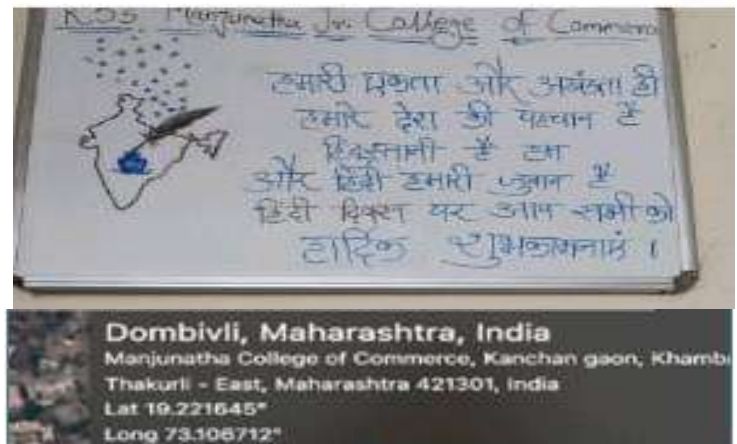 KSS Manjunatha Jr. College of Commerce
हमारी एकता और अखंडता ही
हमारे देश की पहचान है
हिंदुस्तानी है हम
और हिंदी हमारी जुबान है
हिंदी दिवस पर आप सभी को
हार्दिक शुभकामनाएं ।
Dombivli, Maharashtra, India
Manjunatha College of Commerce, Kanchan gaon, Khamb
Thakurli - East, Maharashtra 421301, India
Lat 19.221645°
Long 73.106712°